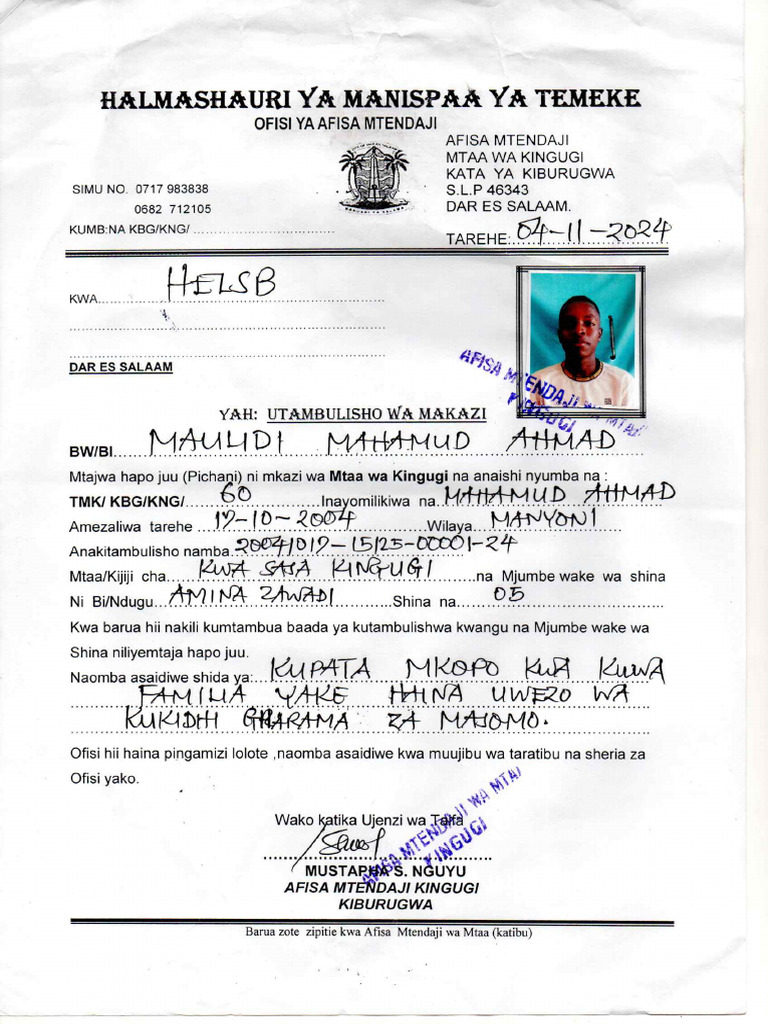 HALMASHAURI YA MANISPAA YA TEMEKE
OFISI YA AFISA MTENDAJI
AFISA MTENDAJI
MTAA WA KINGUGI
KATA YA KIBURUGWA
S.L.P 46343
DAR ES SALAAM.
SIMU NO. 0717 983838
0682 712105
KUMB:NA KBG/KNG/ ..................................
TAREHE: 04-11-2024
KWA HELSB
DAR ES SALAAM
AFISA MTENDAJI WA MTAA
KINGUGI
YAH: UTAMBULISHO WA MAKAZI
BW/BI MAULIDI MAHAMUD AHMAD
Mtajwa hapo juu (Pichani) ni mkazi wa Mtaa wa Kingugi na anaishi nyumba na :
TMK/ KBG/KNG/ 60 Inayomilikiwa na MAHAMUD AHMAD
Amezaliwa tarehe 17-10-2004 Wilaya MANYONI
Anakitambulisho namba 20041017-15125-00001-24
Mtaa/Kijiji cha KWA SASA KINGUGI na Mjumbe wake wa shina
Ni Bi/Ndugu AMINA ZAWADI Shina na 05
Kwa barua hii nakili kumtambua baada ya kutambulishwa kwangu na Mjumbe wake wa
Shina niliyemtaja hapo juu.
Naomba asaidiwe shida ya: KUPATA MKOPO KWA KUWA
FAMILIA YAKE HAINA UWEZO WA
KUKIDHI GHARAMA ZA MASOMO.
Ofisi hii haina pingamizi lolote ,naomba asaidiwe kwa muujibu wa taratibu na sheria za
Ofisi yako.
Wako katika Ujenzi wa Taifa
AFISA MTENDAJI WA MTAA
KINGUGI
MUSTAPHA S. NGUYU
AFISA MTENDAJI KINGUGI
KIBURUGWA
Barua zote zipitie kwa Afisa Mtendaji wa Mtaa (katibu)